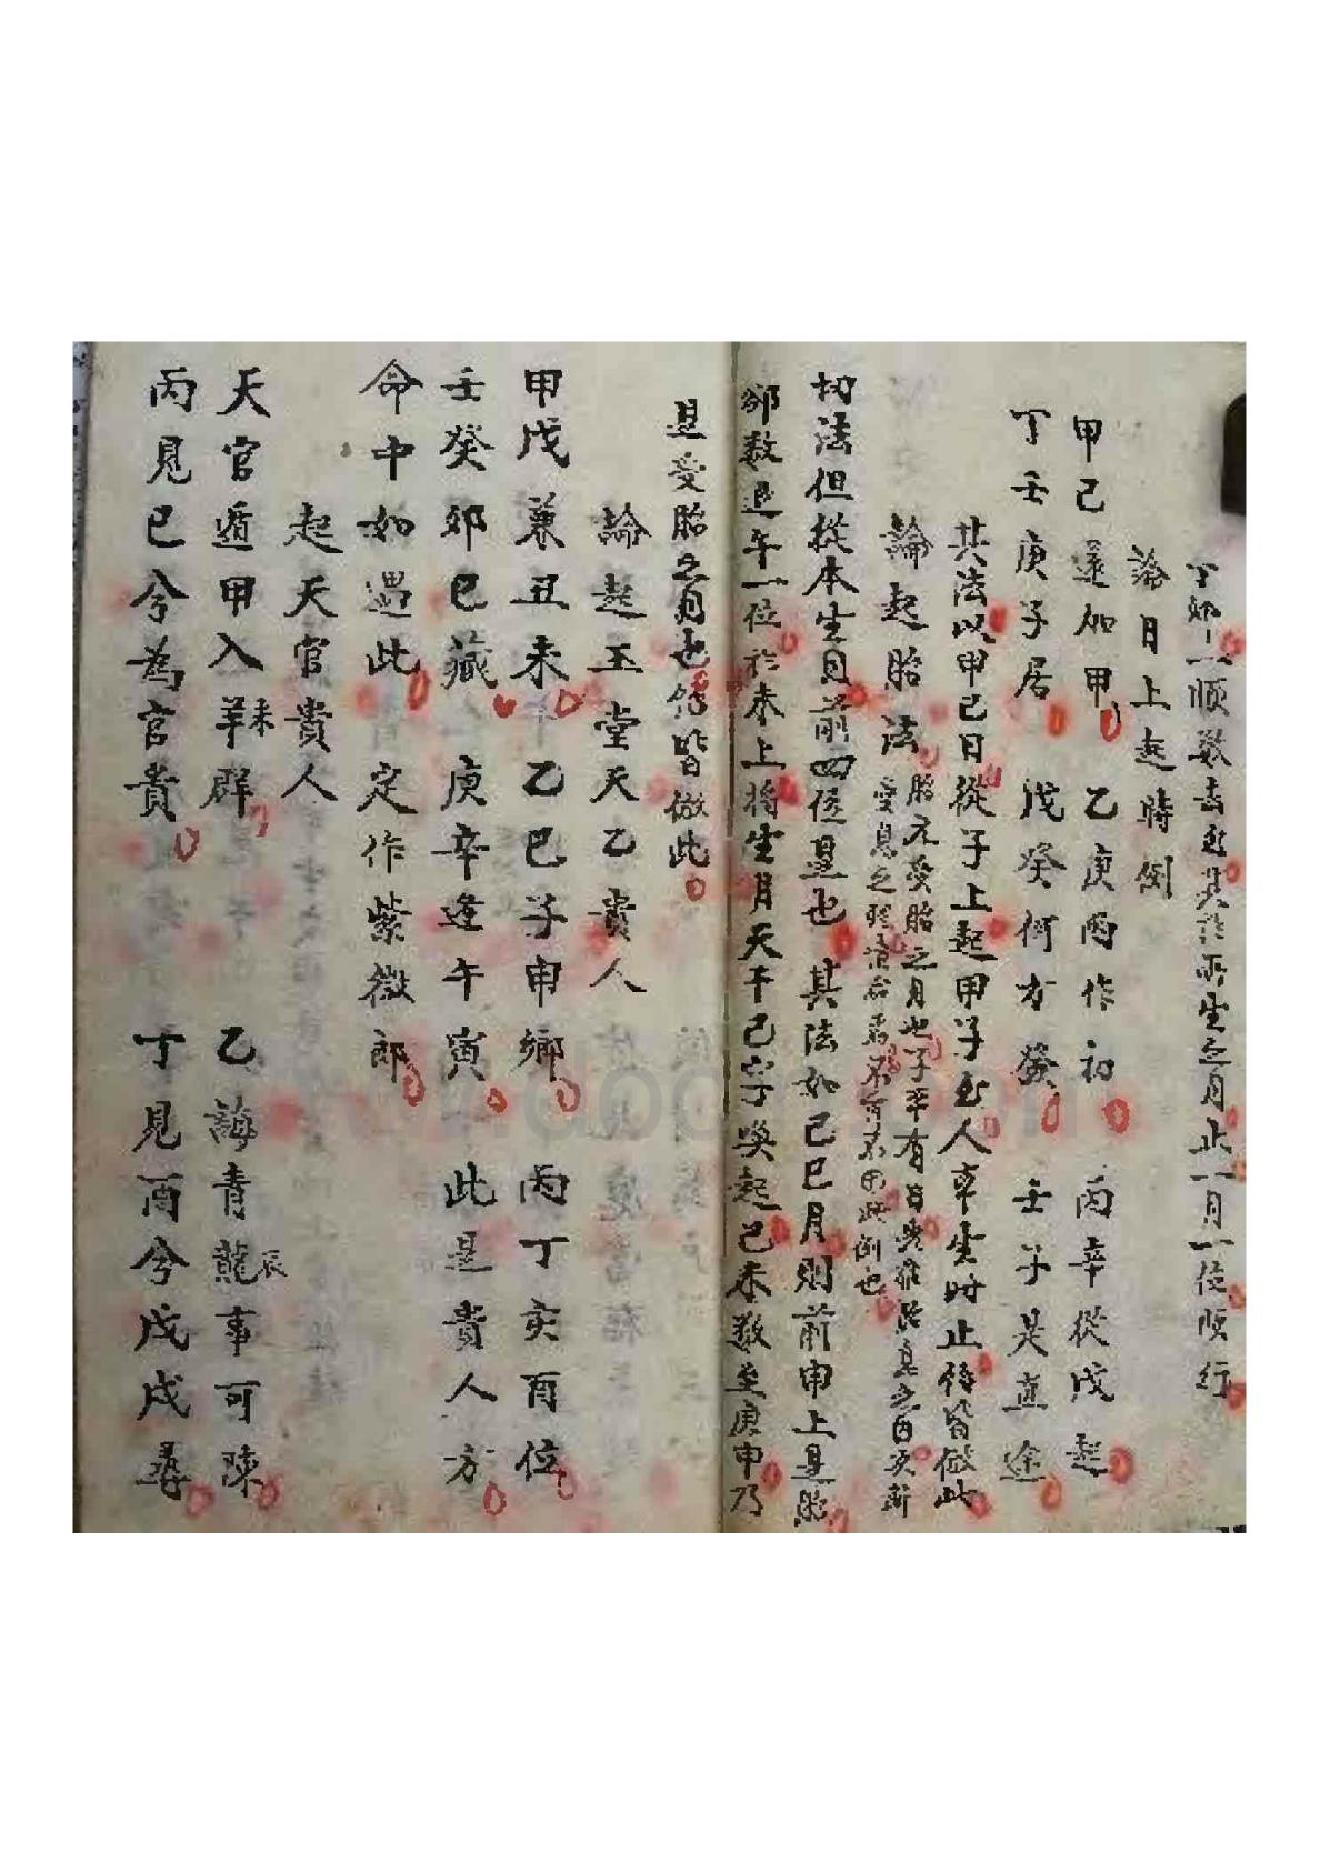 丁夘一順数去起其所生之月止一月一位順行
論日上起時例
甲己還加甲 乙庚丙作初 丙辛從戊起
丁壬庚子居 戊癸何方發 壬子是直途
其法以甲己日從子上起甲子至人事生时止餘皆倣此
論起胎法 胎元受胎之月也子平有曰先推胎息之因次斬
受息之
不用此例也
切法但從本生月前四位是也 其法如己巳月則前申上是胎
郤数退午一位於未上將生月天干己字喚起己未数至庚申乃
是受胎之月也餘皆倣此
論起玉堂天乙貴人
甲戊兼丑未 乙己子申鄉 丙丁亥酉位
壬癸夘巳藏 庚辛逢午寅 此是貴人方
命中如遇此 定作紫微郎
起天官貴人
天官遁甲入羊未群 乙誨青龍辰事可陳
丙見巳兮為官貴 丁見酉兮戊戌尋